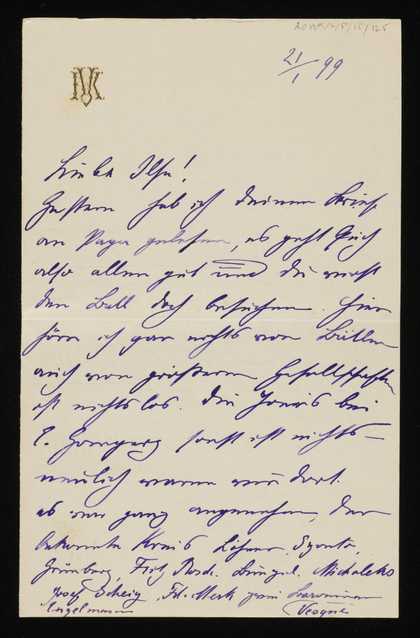 21/1 99
MK
Liebe Ilse!
Gestern hab ich deinen Brief
an Papa gelesen, es geht Euch
also allen gut und du wirst
den Ball doch besuchen. Hier
höre ich gar nichts von Bällen
auch von größeren Gesellschaften
ist nichts los. Die Jours bei
E. Gomperz sonst ist nichts –
neulich waren wir dort.
es war ganz angenehm, der
bekannte Kreis
Grünberg Fritz Michalek
Josef Fr. Merk zwei
Engelmann